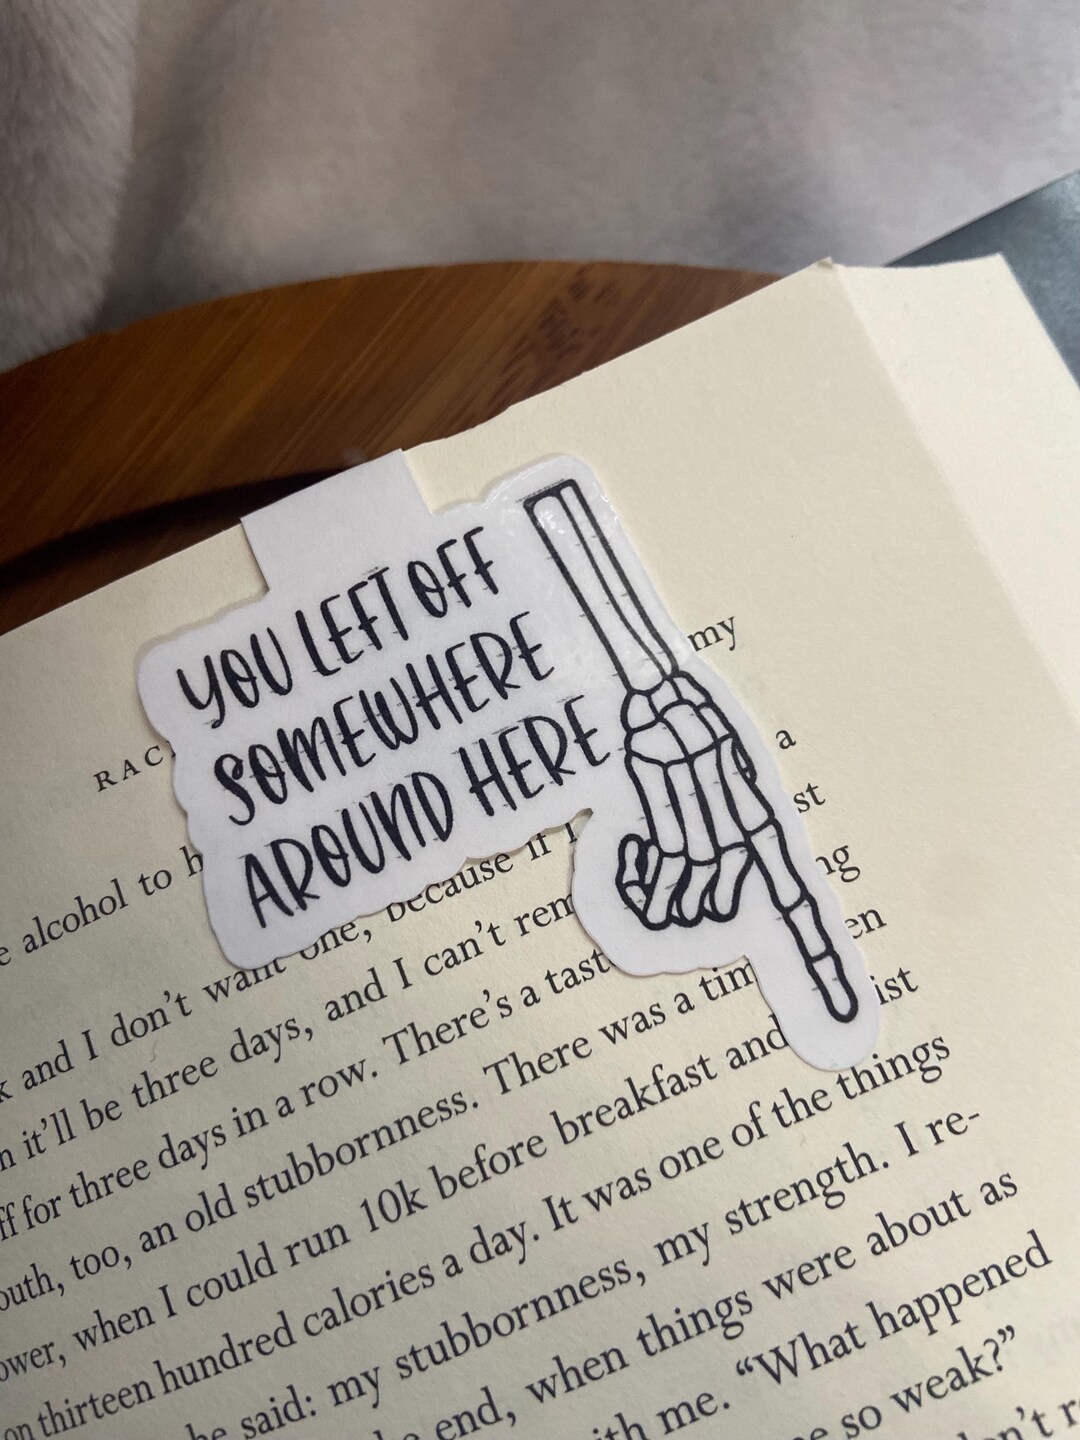 YOU LEFT OFF
SOMEWHERE
AROUND HERE
RAC
e alcohol to h my
k and I don't want one, because if I a
n it'll be three days, and I can't rem st
ff for three days in a row. There's a tast ng
outh, too, an old stubbornness. There was a tim en
ower, when I could run 10k before breakfast and ist
on thirteen hundred calories a day. It was one of the things
he said: my stubbornness, my strength. I re-
e end, when things were about as
ith me. “What happened
e so weak?”
on't r